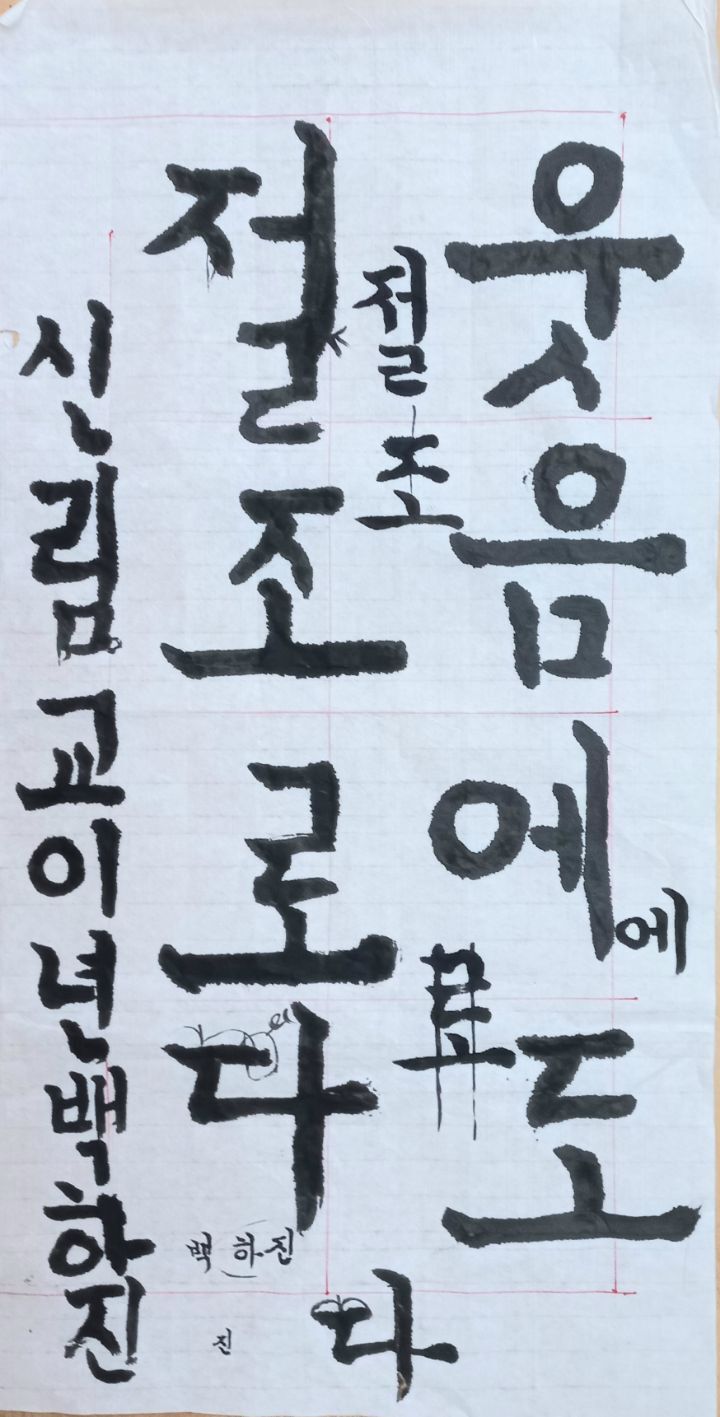 웃음에도
에
절조
절조로다
다
백하진
진
신림교이년백하진